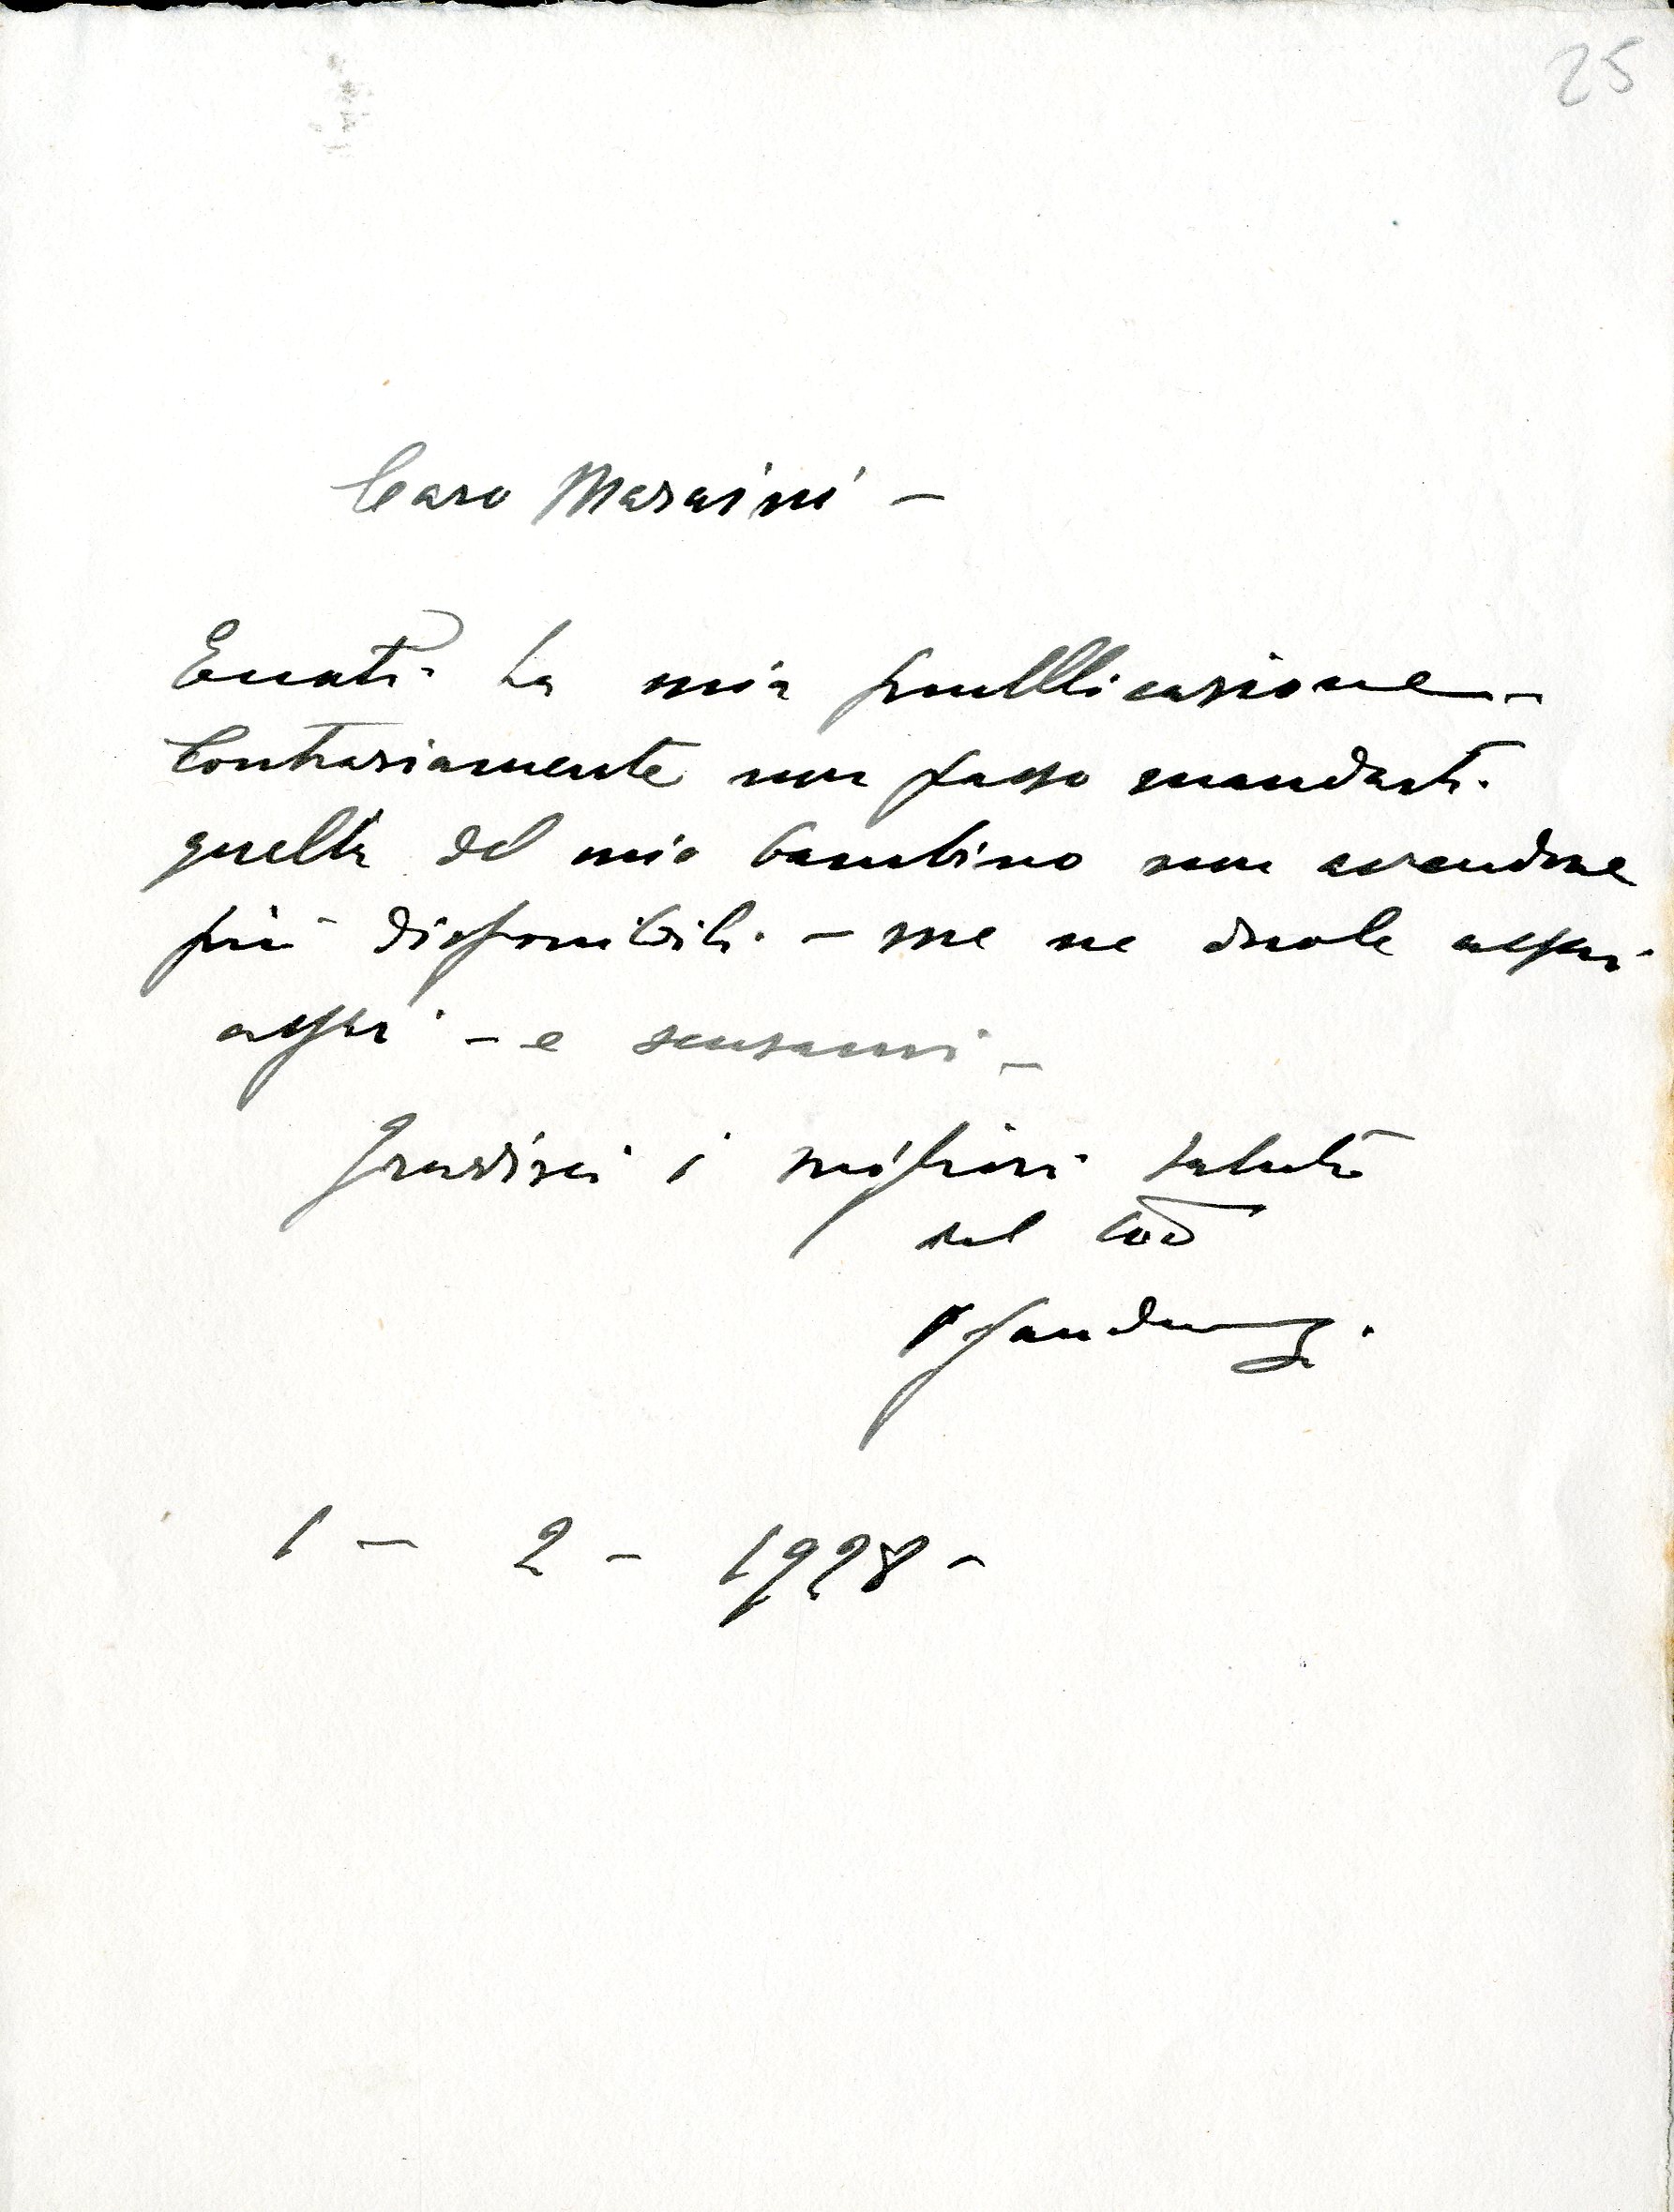 25
Caro Maraini –
Eccoti la mia pubblicazione –
Contrariamente non posso mandarti
quella del mio bambino non avendone
più disponibili. – me ne duole assai
assai – e scusami –
Gradisci i migliori saluti
dal tuo
1 – 2 – 1928 –